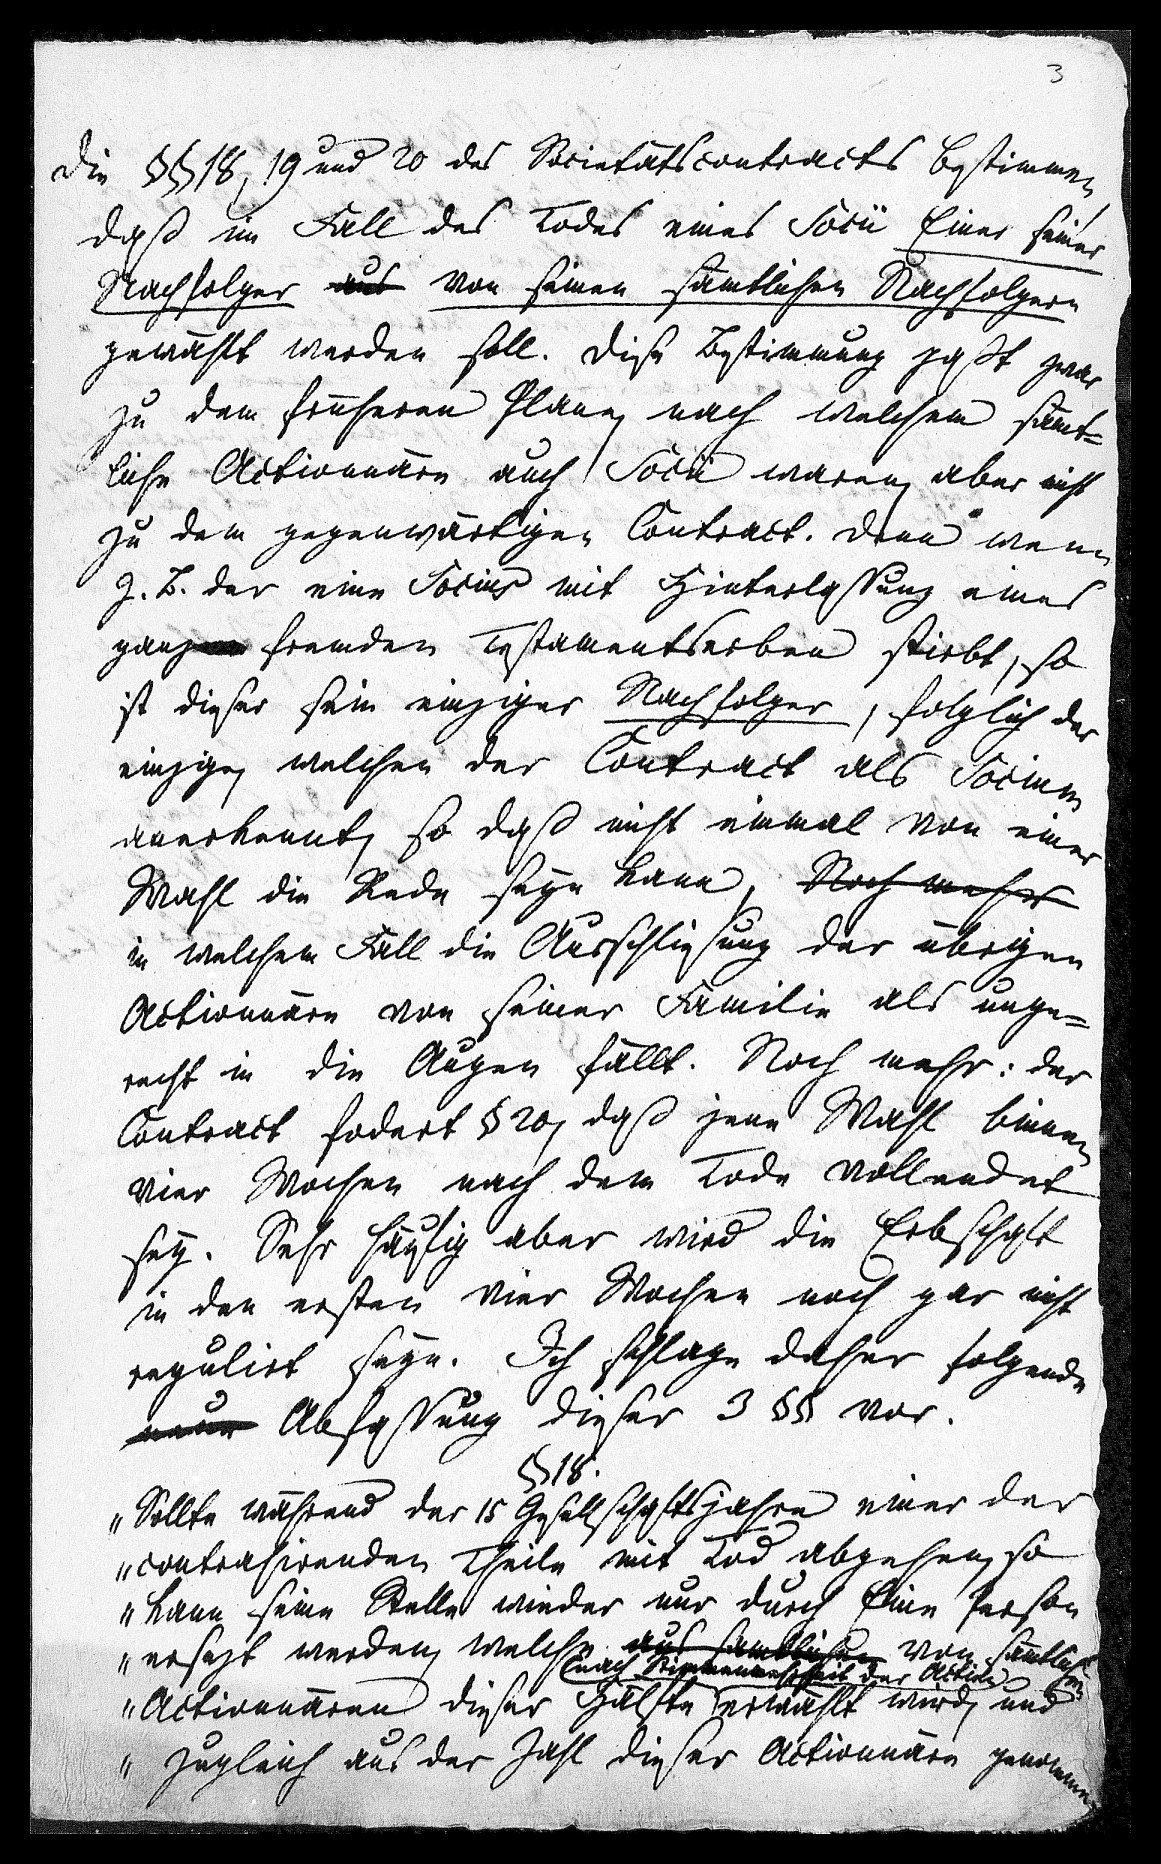 3
Die §§ 18, 19 und 20 des Societätscontracts bestimmen
daß im Fall des Todes eines Socii Einer seiner
Nachfolger aus von seinen sämtlichen Nachfolgern
gewählt werden soll. Diese Bestimmung paßt zwar
zu dem früheren Plane, nach welchem sämt=
liche Actionnäre auch Socii waren, aber nicht
zu dem gegenwärtigen Contract. Denn wenn
z. B. der eine Socius mit Hinterlassung eines
ganz fremden Testamentserben stirbt, so
ist dieser sein einziger Nachfolger, folglich der
einzige, welchen der Contract als Socium
anerkennt, so daß nicht einmal von einer
Wahl die Rede seyn kann, Noch mehr
in welchem Fall die Ausschließung der übrigen
Actionnäre von seiner Familie als unge=
recht in die Augen fällt. Noch mehr: der
Contract fodert § 20, daß jene Wahl binnen
vier Wochen nach dem Tode vollendet
sey. Sehr häufig aber wird die Erbschaft
in den ersten vier Wochen noch gar nicht
regulirt seyn. Ich schlage daher folgende
neue Abfassung dieser 3 §§ vor.
§ 18.
„Sollte während der 15 Gesellschaftsjahre einer der
„contrahirenden Theile mit Tod abgehen, so
„kann seine Stelle wieder nur durch Eine Person
„ersezt werden, welche aus sämtlichen von sämtlichen
(nach Stimmenmehrheit der Actien)
„Actionnären dieser Hälfte erwählt wird, und
„zugleich aus der Zahl dieser Actionnäre genommen